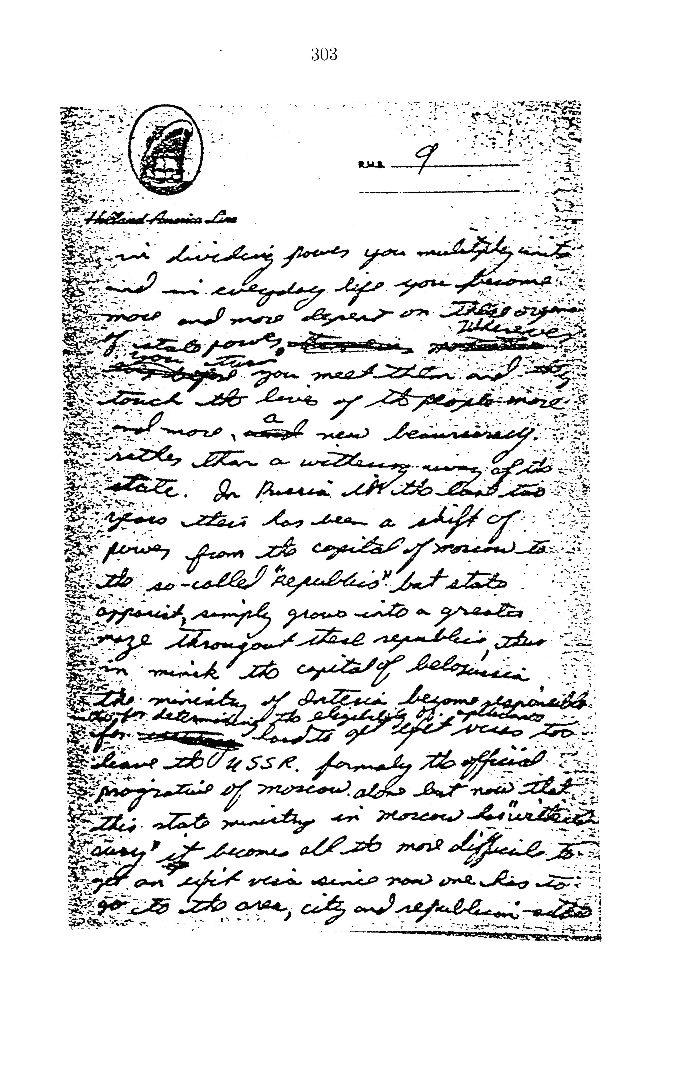 303
R.M.S. 9
Holland-America Line
in dividing power you multiply units
and in everyday life you become
more and more depent on these organs
of state power, Wherever
you turn you meet them and they
touch the lives of the people more
and more, a new beaurcracy.
rather than a withering away of the
state. In Russia in the last two
years their has been a shift of
power from the capital of moscow to
the so-called "republics" but state
apparist, simply grows into a greater
maze througout these republics, thus
in minsk the capital of belorussia
the ministry of Interia become responsible
for determining the eligibility of applicants
for to get "exit" visas too
leave the USSR. formely the official
progrative of moscow alone but now that
this state ministry in moscow has "withered
away" it becomes all the more difficult to
get an exit visa since now one has to
go to the area, city and republican